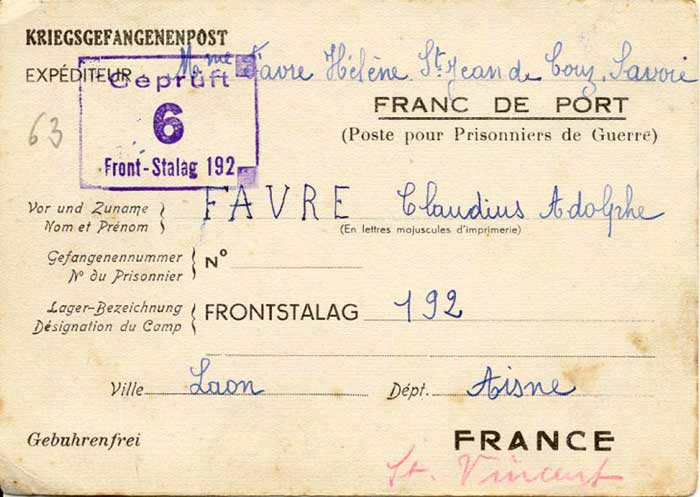 KRIEGSGEFANGENENPOST
EXPÉDITEUR Mme Favre Hélène St Jean de Couz, Savoie
Geprüft
6
Front-Stalag 192
63
FRANC DE PORT
(Poste pour Prisonniers de Guerre)
Vor und Zuname
Nom et Prénom
FAVRE Claudius Adolphe
(En lettres majuscules d'imprimerie)
Gefangenennummer
N° du Prisonnier
N°
Lager-Bezeichnung
Désignation du Camp
FRONTSTALAG 192
Ville Laon Dépt. Aisne
Gebuhrenfrei FRANCE
St. Vincent